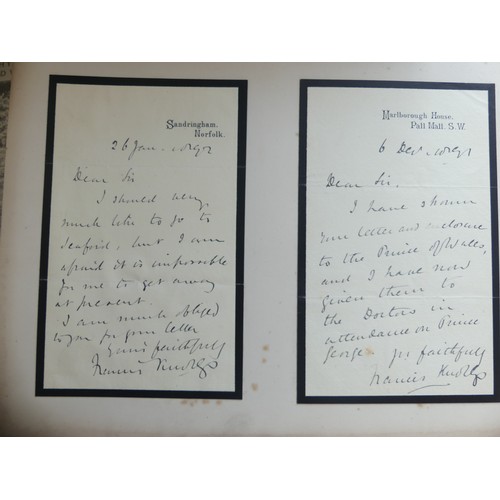 Sandringham,
Norfolk.
26 Jan. 1892
Dear Sir
I should very
much like to go to
Seaford, but I am
afraid it is impossible
for me to get away
at present.
I am much obliged
to you for your letter
Yours faithfully
Francis Knollys
Marlborough House,
Pall Mall. S.W.
6 Decr. 1891
Dear Sir.
I have shown
your letter and enclosure
to the Prince of Wales,
and I have now
given them to
the Doctors in
attendance on Prince
George. Yrs faithfully
Francis Knollys